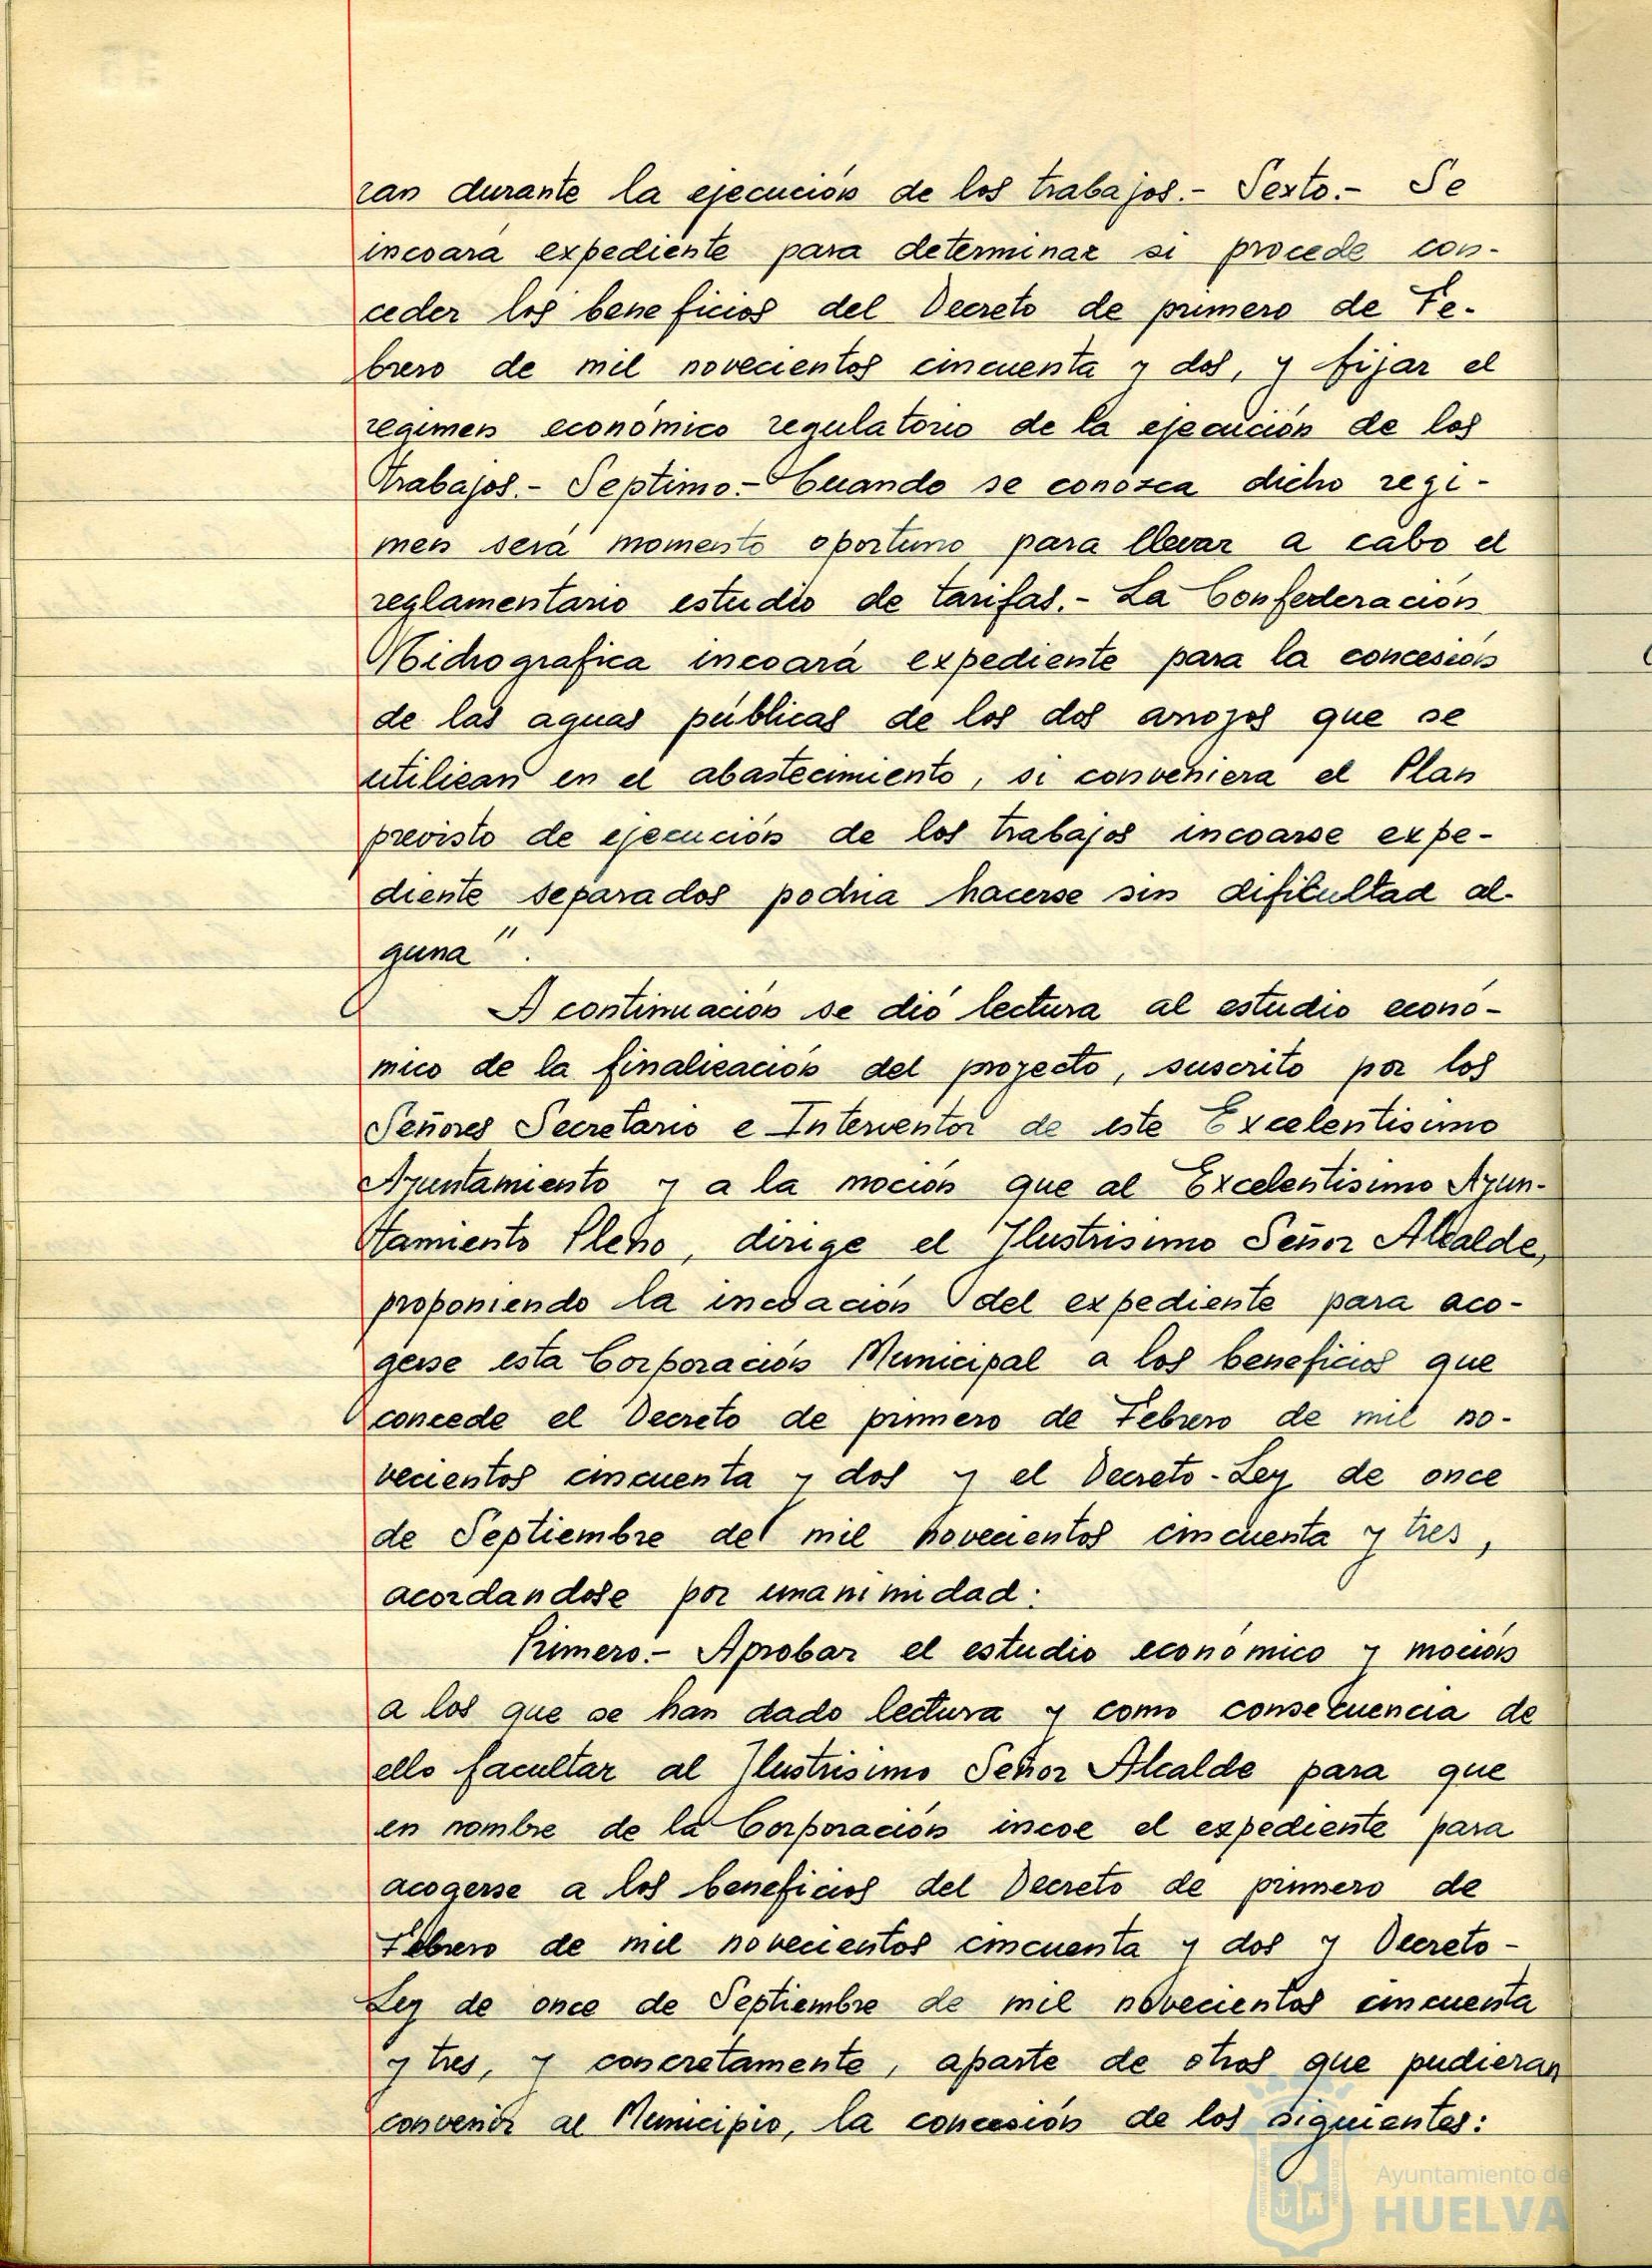 ran durante la ejecución de los trabajos.- Sexto.- Se
incoara expediente para determinar si procede con-
ceder los beneficios del Decreto de primero de Fe-
brero de mil novecientos cincuenta y dos, y fijar el
regimen económico regulatorio de la ejecución de los
trabajos.- Septimo.- Cuando se conozca dicho regi-
men será momento oportuno para llevar a cabo el
reglamentario estudio de tarifas.- La Confederación
Hidrografica incoará expediente para la concesión
de las aguas públicas de los dos arroyos que se
utilizan en el abastecimiento, si conveniera el Plan
previsto de ejecución de los trabajos incoarse expe-
diente separados podria hacerse sin dificultad al-
guna".
A continuación se dió lectura al estudio econó-
mico de la finalización del proyecto, suscrito por los
Señores Secretario e Interventor de este Excelentisimo
Ayuntamiento y a la moción que al Excelentisimo Ayun-
tamiento Pleno, dirige el Ilustrisimo Señor Alcalde,
proponiendo la incoación del expediente para aco-
gerse esta Corporación Municipal a los beneficios que
concede el Decreto de primero de Febrero de mil no-
vecientos cincuenta y dos y el Decreto-Ley de once
de Septiembre de mil novecientos cincuenta y tres,
acordandose por unanimidad:
Primero.- Aprobar el estudio económico y moción
a los que se han dado lectura y como consecuencia de
ello facultar al Ilustrisimo Señor Alcalde para que
en nombre de la Corporación incoe el expediente para
acogerse a los beneficios del Decreto de primero de
Febrero de mil novecientos cincuenta y dos y Decreto-
Ley de once de Septiembre de mil novecientos cincuenta
y tres, y concretamente, aparte de otros que pudieran
convenir al Municipio, la concesión de los siguientes:
Ayuntamiento de
HUELVA